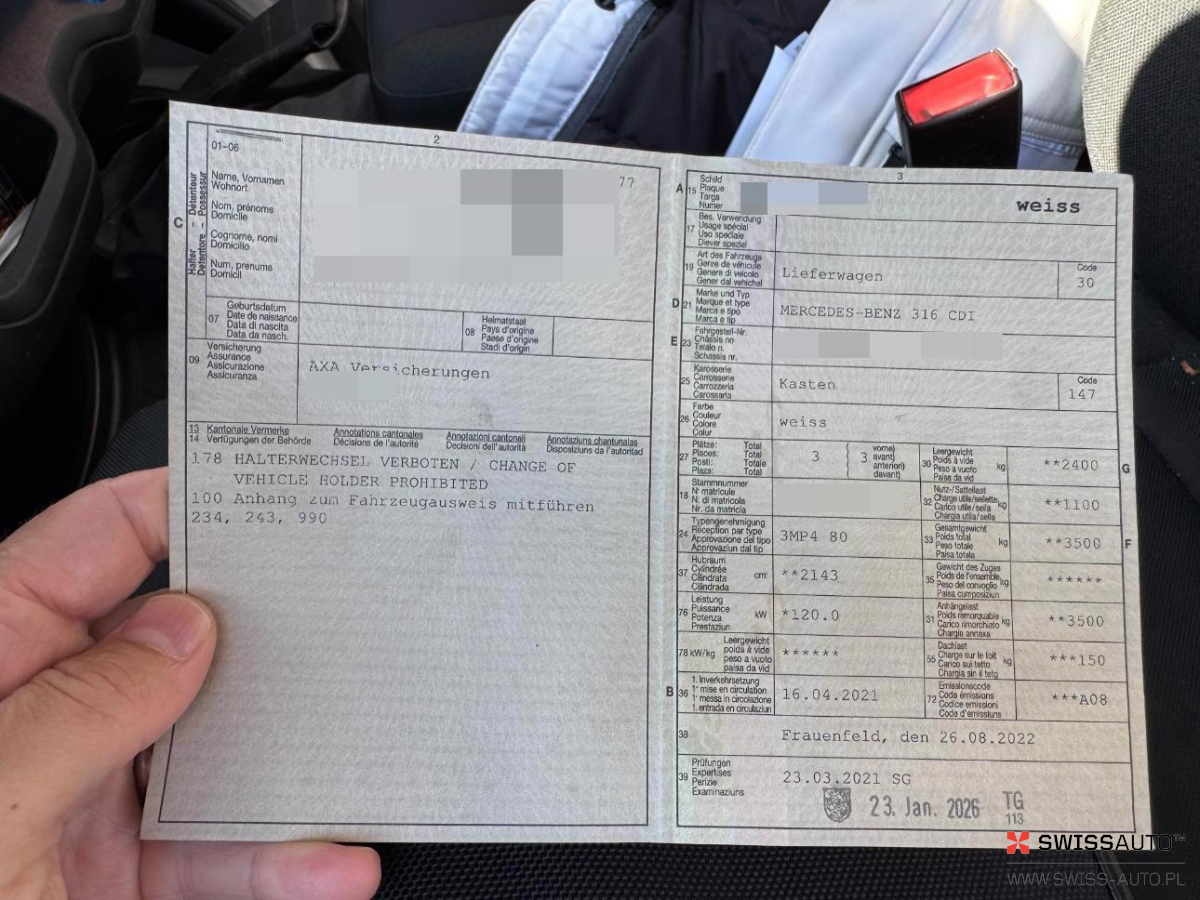 2
01-06
Halter - Détenteur
Detentore - Possessur
C
Name, Vornamen
Wohnort
Nom, prénoms
Domicile
Cognome, nomi
Domicilio
Num, prenums
Domicil
77
07
Geburtsdatum
Date de naissance
Data di nascita
Data da nasch.
08
Heimatstaat
Pays d'origine
Paese d'origine
Stadi d'origin
09
Versicherung
Assurance
Assicurazione
Assicuranza
AXA Versicherungen
13 Kantonale Vermerke Annotations cantonales Annotazioni cantonali Annotaziuns chantunalas
14 Verfügungen der Behörde Décisions de l'autorité Decisioni dell'autorità Disposiziuns da l'autoritad
178 HALTERWECHSEL VERBOTEN / CHANGE OF
VEHICLE HOLDER PROHIBITED
100 Anhang zum Fahrzeugausweis mitführen
234, 243, 990
3
A 15
Schild
Plaque
Targa
Numer
weiss
17
Bes. Verwendung
Usage spécial
Uso speciale
Diever spezial
19
Art des Fahrzeugs
Genre de véhicule
Genere di veicolo
Gener dal vehichel
Lieferwagen
Code
30
D 21
Marke und Typ
Marque et type
Marca e tipo
Marca e tip
MERCEDES-BENZ 316 CDI
E 23
Fahrgestell-Nr.
Châssis no
Telaio n.
Schassis nr.
25
Karosserie
Carrosserie
Carrozzeria
Carossaria
Kasten
Code
147
26
Farbe
Couleur
Colore
Colur
weiss
27
Plätze: Total
Places: Total
Posti: Totale
Plazs: Total
3
3
vorne)
avant)
anteriori)
davant)
30
Leergewicht
Poids à vide
Peso a vuoto
Paisa da vid
kg
**2400
G
18
Stammnummer
N° matricule
N. di matricola
Nr. da matricla
32
Nutz-/Sattellast
Charge utile/sellette
Carico utile/sella
Chargia utila/sella
kg
**1100
24
Typengenehmigung
Réception par type
Approvazione del tipo
Approvaziun dal tip
3MP4 80
33
Gesamtgewicht
Poids total
Peso totale
Paisa totala
kg
**3500
F
37
Hubraum
Cylindrée
Cilindrata
Cilindrada
cm³
**2143
35
Gewicht des Zuges
Poids de l'ensemble
Peso del convoglio
Paisa cumposiziun
kg
******
76
Leistung
Puissance
Potenza
Prestaziun
kW
*120.0
31
Anhängelast
Poids remorquable
Carico rimorchiato
Chargia annexa
kg
**3500
78 kW/kg
Leergewicht
poids à vide
peso a vuoto
paisa da vid
******
55
Dachlast
Charge sur le toit
Carico sul tetto
Chargia sin il tetg
kg
***150
B 36
1. Inverkehrsetzung
1re mise en circulation
1a messa in circolazione
1. entrada en circulaziun
16.04.2021
72
Emissionscode
Code émissions
Codice emissioni
Code d'emissiuns
***A08
38
Frauenfeld, den 26.08.2022
39
Prüfungen
Expertises
Perizie
Examinaziuns
23.03.2021 SG
23. Jan. 2026
TG
113
SWISSAUTO™
WWW.SWISS-AUTO.PL